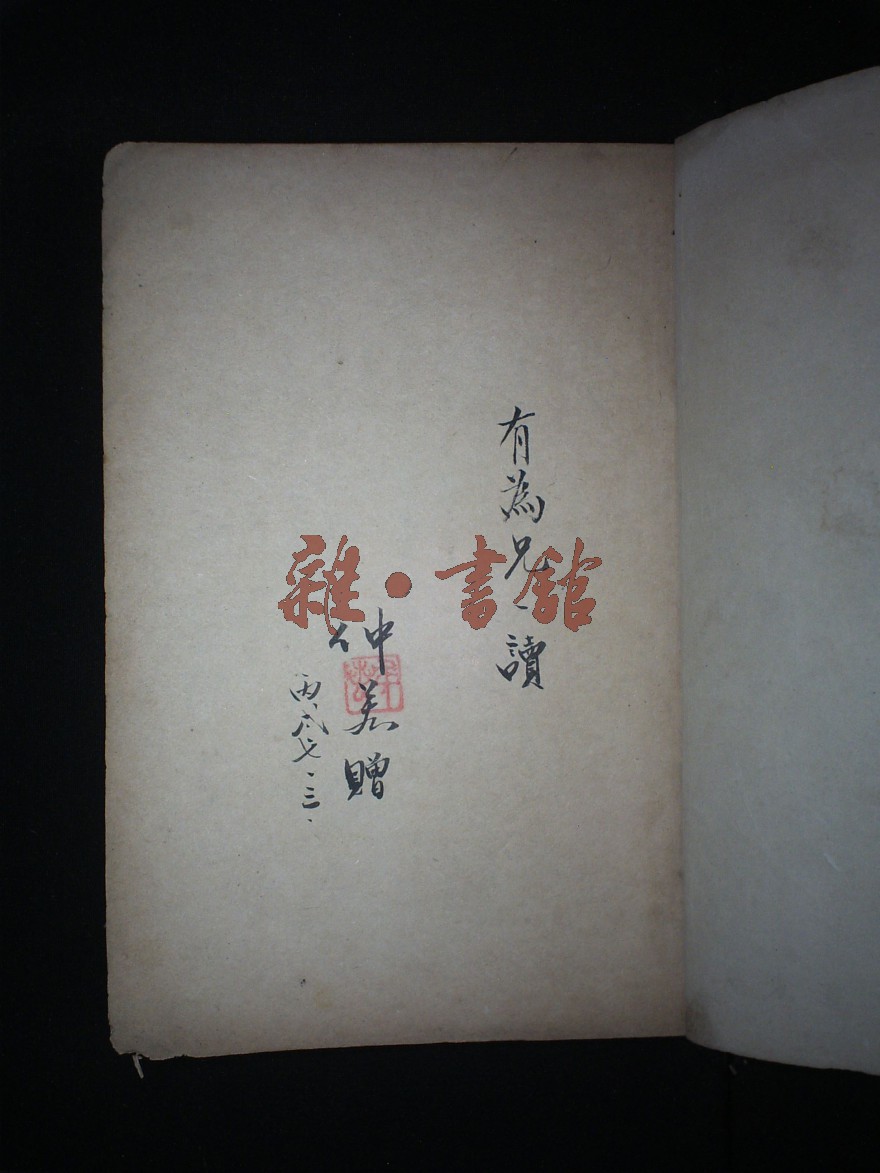 有為兄、讀
仲羔贈
丙戌七·三·
雜·書館